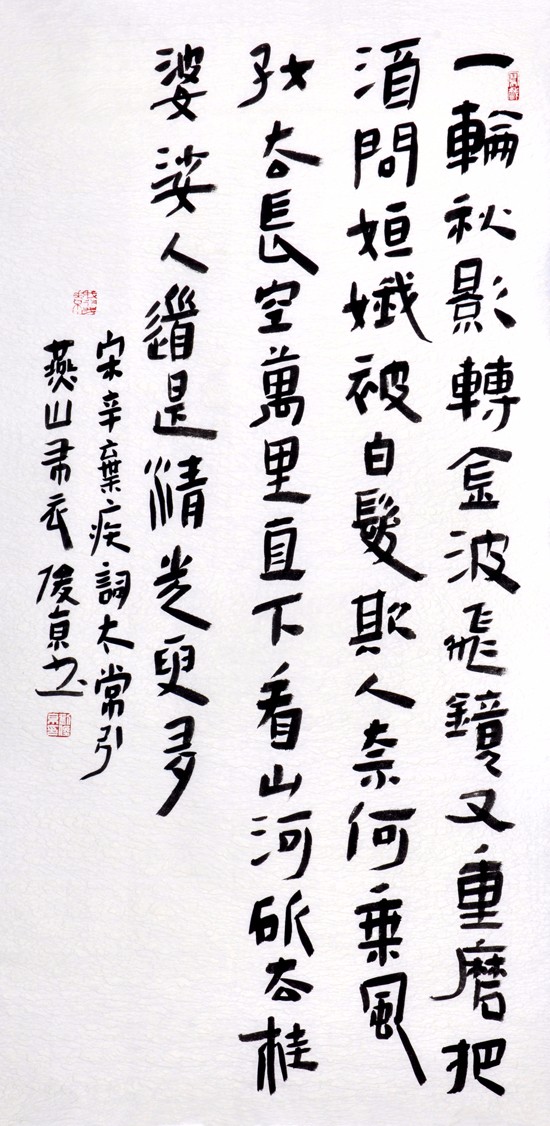 一輪秋影轉金波飛鏡又重磨把
酒問姮娥被白髮欺人奈何乘風
好去長空萬里直下看山河斫去桂
婆娑人道是清光更多
宋辛棄疾詞太常引
燕山布衣俊京书